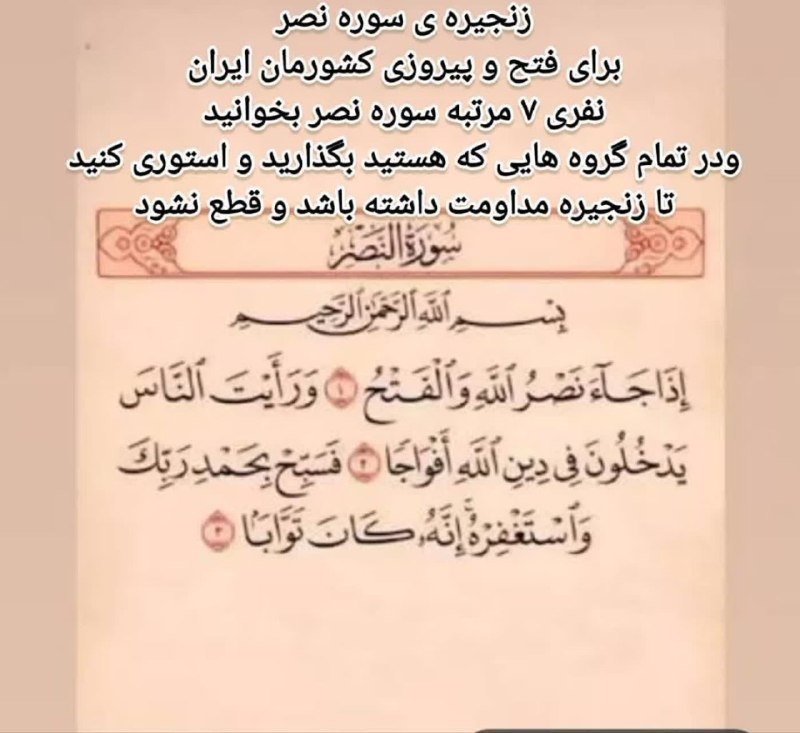 زنجیره ی سوره نصر
برای فتح و پیروزی کشورمان ایران
نفری ۷ مرتبه سوره نصر بخوانید
ودر تمام گروه هایی که هستید بگذارید و استوری کنید
تا زنجیره مداومت داشته باشد و قطع نشود
سُورَةُ النَّصْرِ
بِسْمِ ٱللَّهِ ٱلرَّحْمَٰنِ ٱلرَّحِيمِ
إِذَا جَآءَ نَصْرُ ٱللَّهِ وَٱلْفَتْحُ ١ وَرَأَيْتَ ٱلنَّاسَ
يَدْخُلُونَ فِى دِينِ ٱللَّهِ أَفْوَاجًا ٢ فَسَبِّحْ بِحَمْدِ رَبِّكَ
وَٱسْتَغْفِرْهُ ۚ إِنَّهُۥ كَانَ تَوَّابًۢا ٣